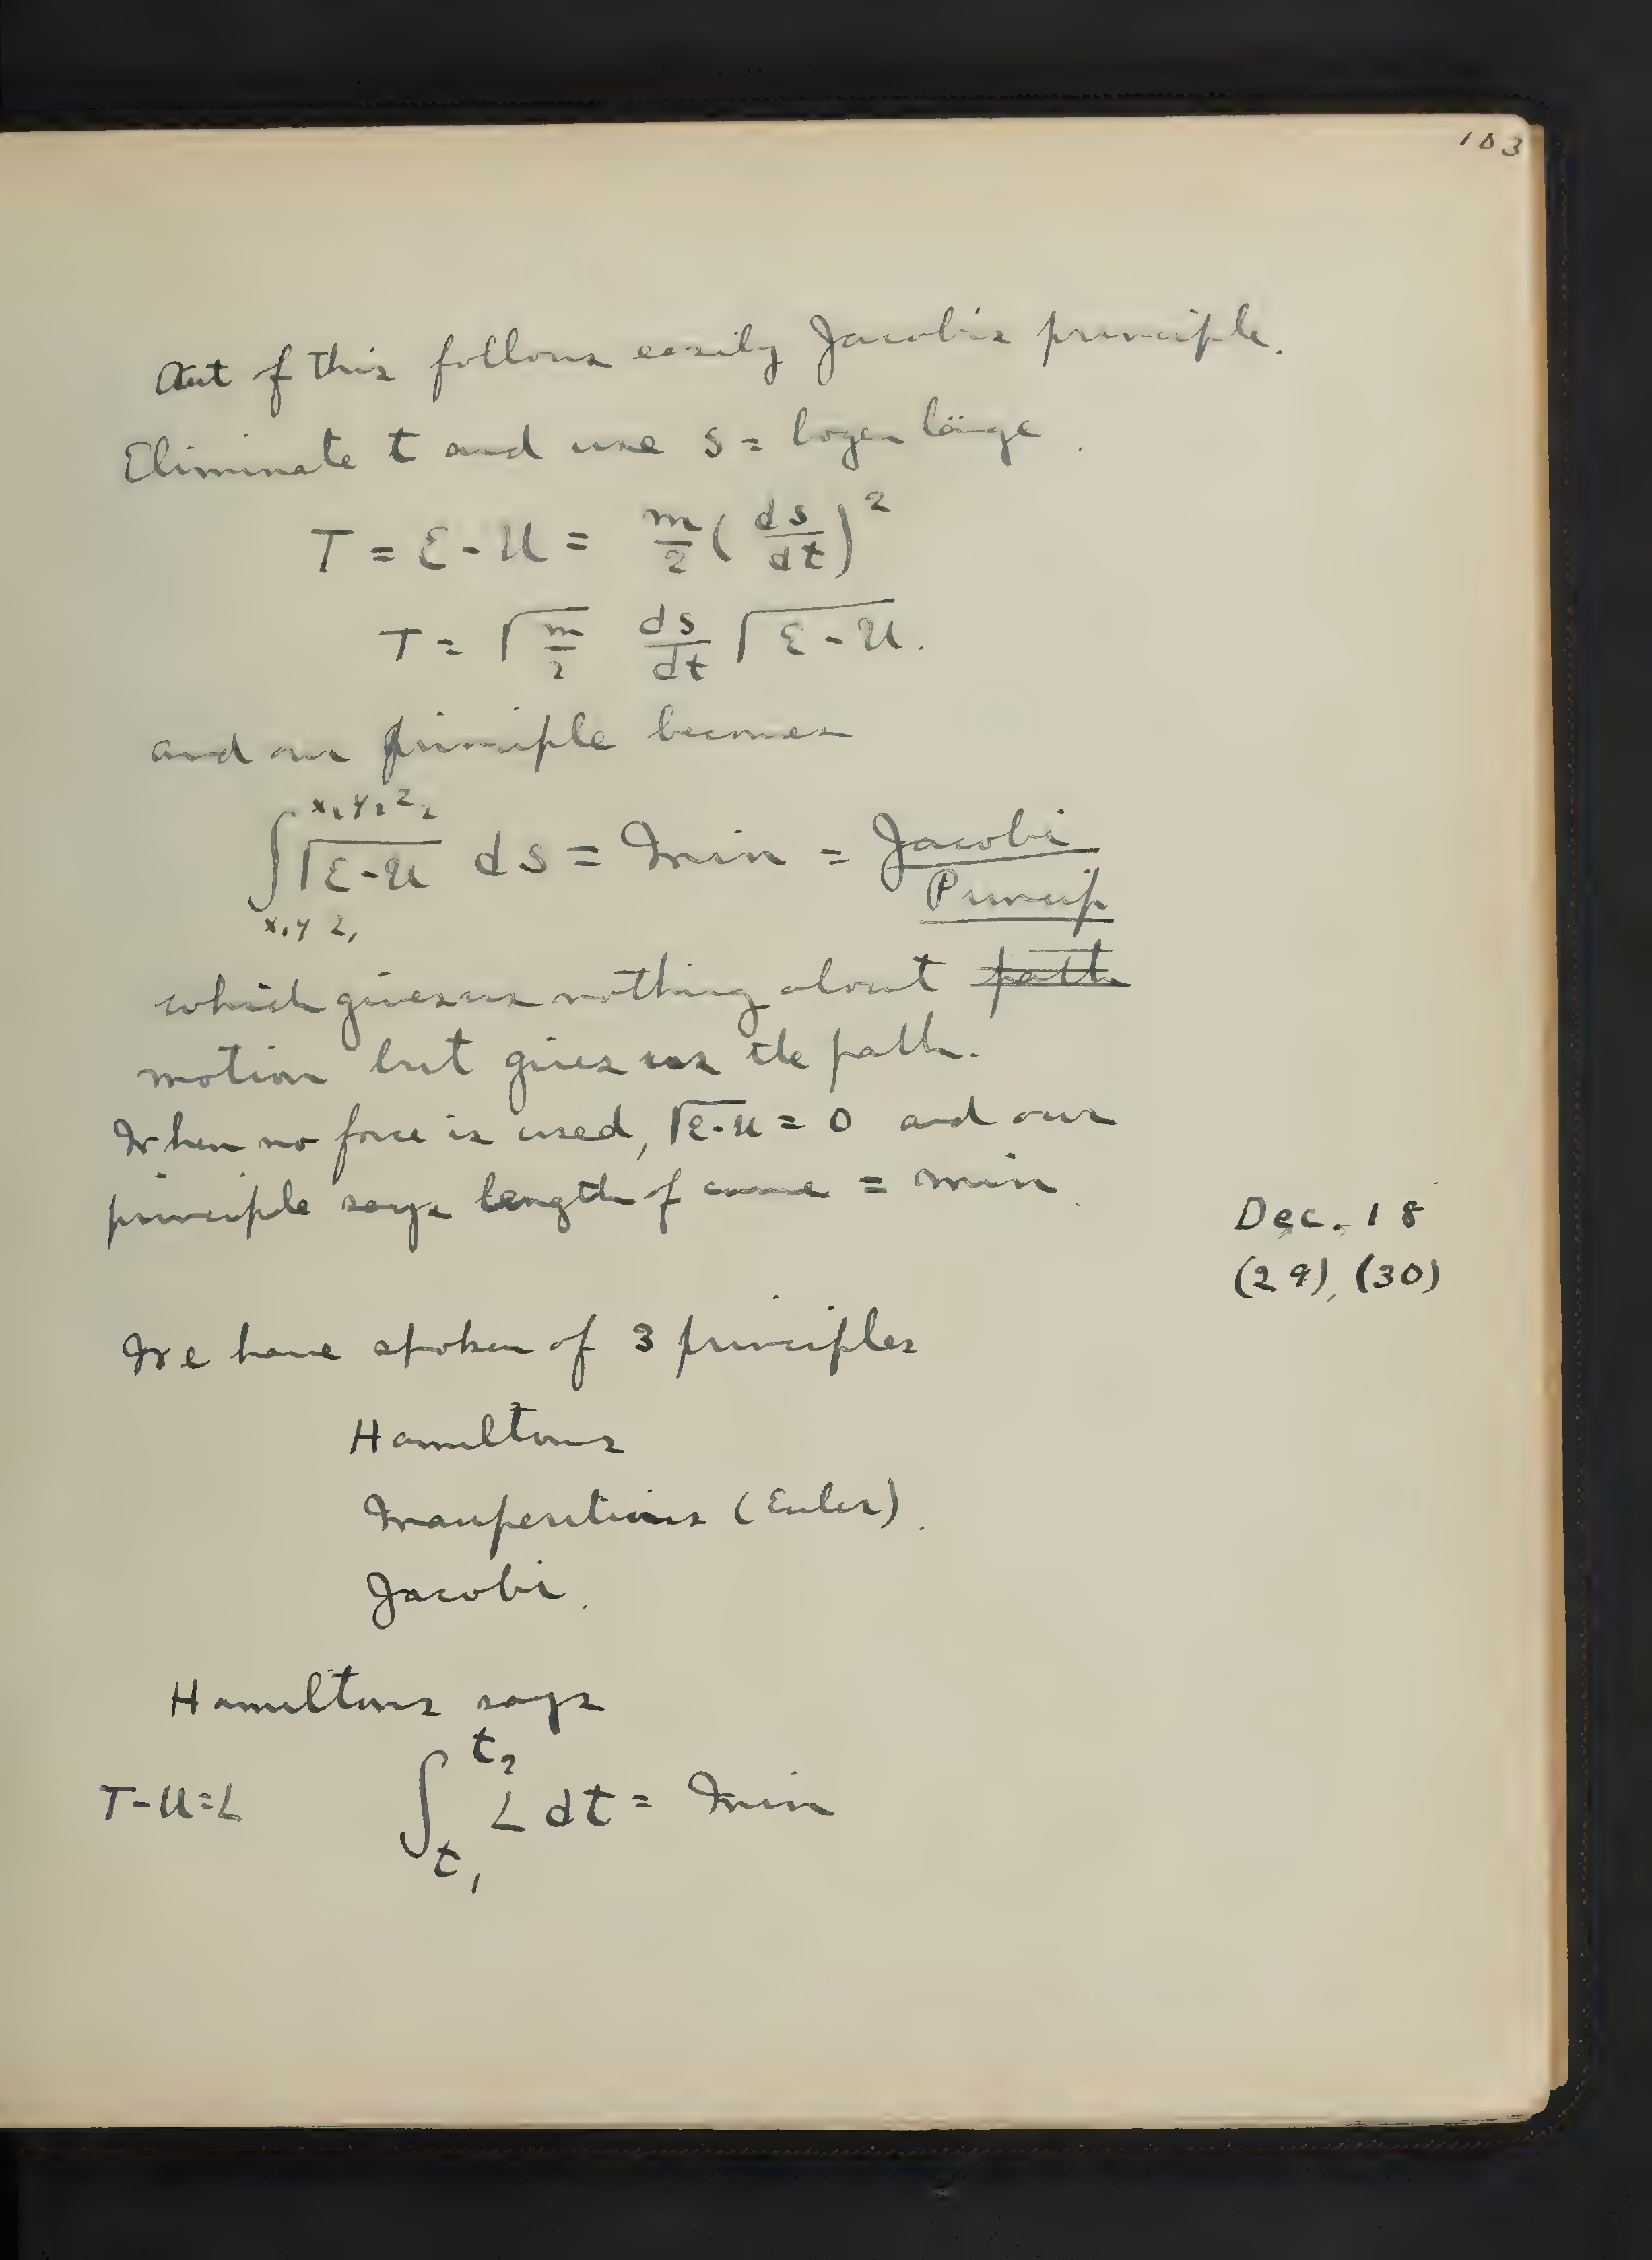 103
Out of this follows easily Jacobis principle.
Eliminate t and use s = bogen länge.
T = E - U = m/2 (ds/dt)²
T = √m/2 ds/dt √E - U.
and our principle becomes
∫_{x₁y z₁}^{x₂y₂z₂} √E-U ds = Min = Jacobi
Princip
which gives us nothing about path
motion but gives us the path.
When no force is used, √E-U = 0 and our
principle says length of curve = min.
Dec. 18
(29), (30)
We have spoken of 3 principles
Hamiltons
Maupertuis (Euler).
Jacobi.
Hamiltons says
T-U=L ∫_{t₁}^{t₂} L dt = Min